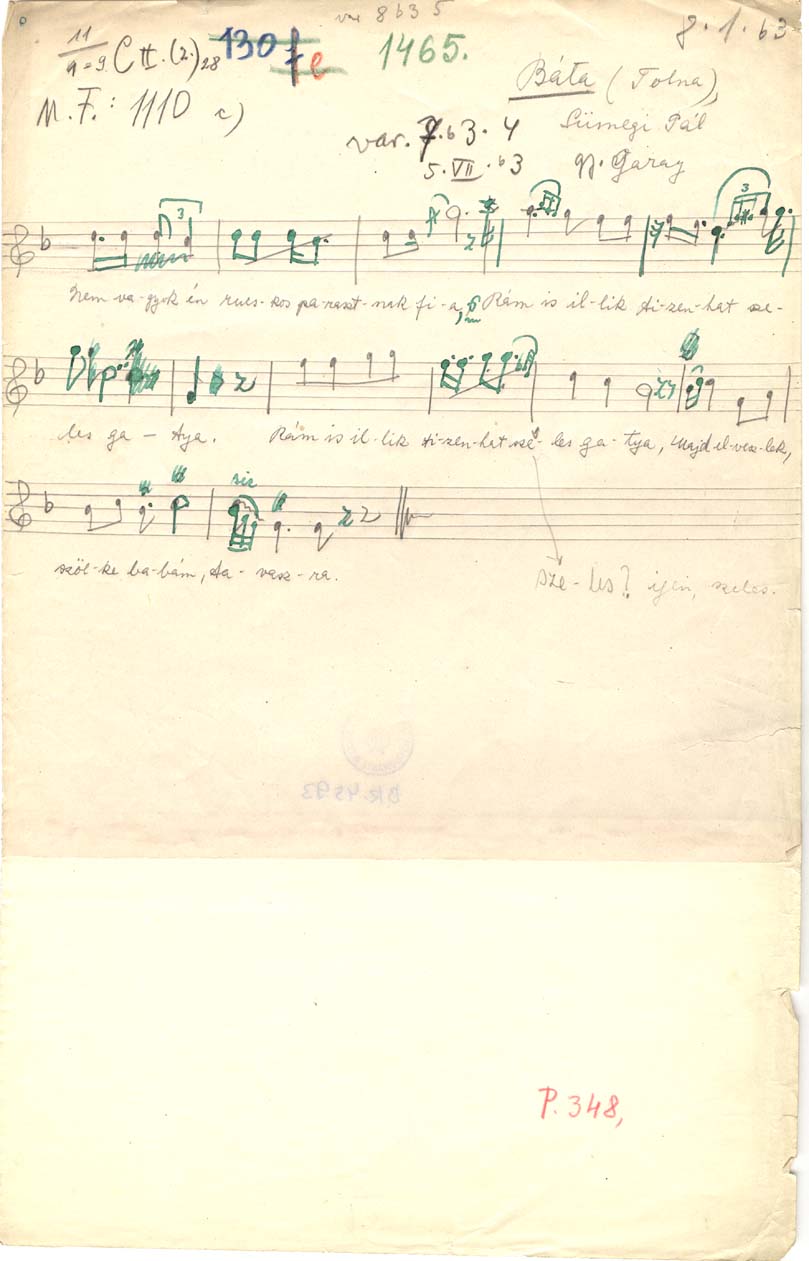 var 8 b3 5
8. 1. b3
11
9=9. C II. (2.) 28 130 f e 1465.
M. F.: 1110 c)
Báta (Tolna),
var. 7. b3. 4 Sümegi Pál
5. VII. b3 gy. Garay
3
3
Nem va-gyok én rucs-kos pa-raszt-nak fi-a, Rám is il-lik ti-zen-hat sze-
les ga - tya. Rám is il-lik ti-zen-hat sze- les ga-tya, Majd el-vesz-lek,
sic
ször-ke ba-bám, ta-vasz-ra.
sze-les? igen, szeles.
BR. 4593
P. 348,